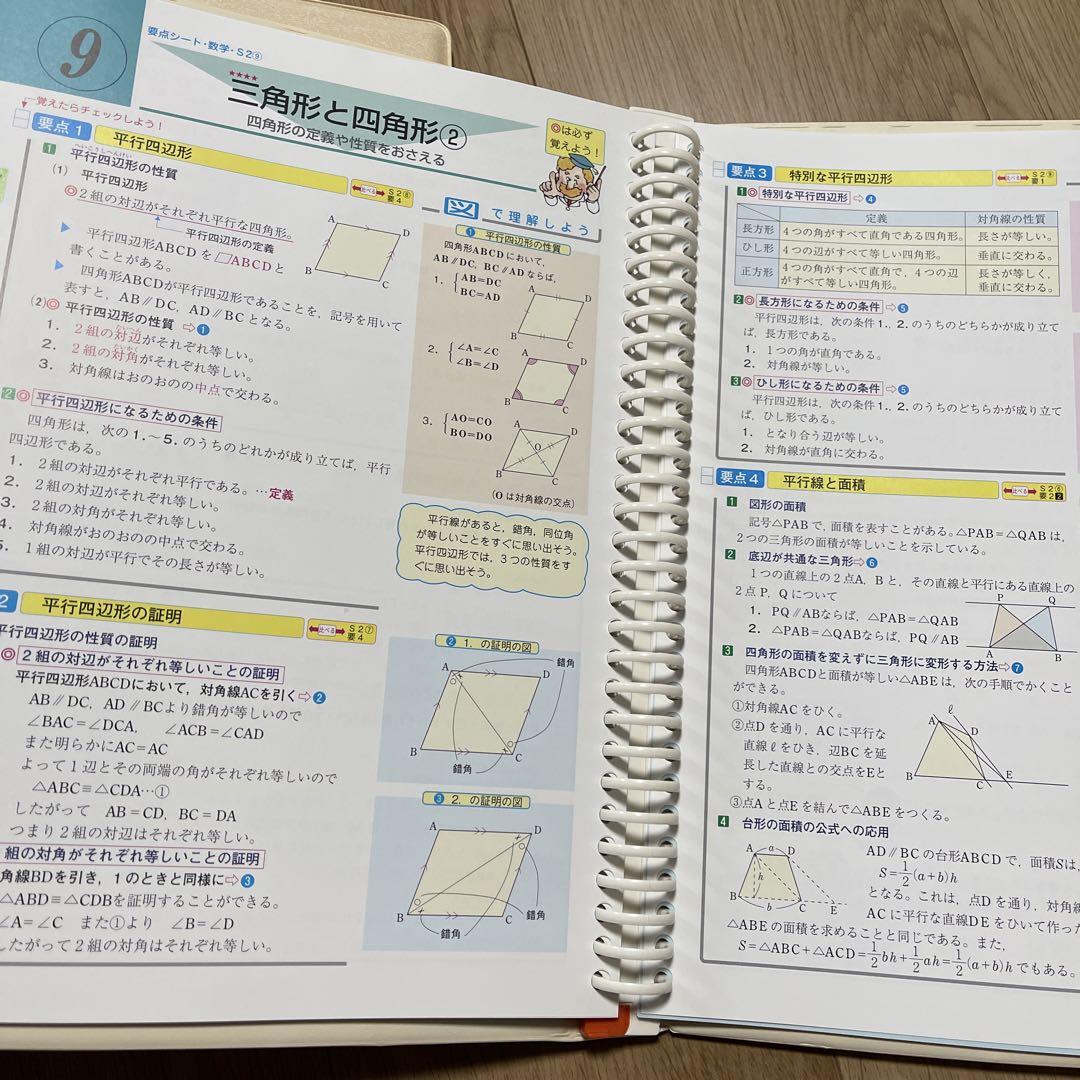 9
要点シート・数学・S2⑨
★★★★
三角形と四角形②
四角形の定義や性質をおさえる
覚えたらチェックしよう!
◎は必ず
覚えよう!
要点1 平行四辺形
比べる S2⑧
要4
へいこうしへんけい
1 平行四辺形の性質
(1) 平行四辺形
◎2組の対辺がそれぞれ平行な四角形。
平行四辺形の定義
▶ 平行四辺形ABCDを▱ABCDと
書くことがある。
▶ 四角形ABCDが平行四辺形であることを,記号を用いて
表すと,AB∥DC,AD∥BCとなる。
A
D
B
C
(2)◎平行四辺形の性質⇨❶
1. 2組の対辺がそれぞれ等しい。
2. 2組の対角がそれぞれ等しい。
3. 対角線はおのおのの中点で交わる。
2◎平行四辺形になるための条件
四角形は,次の1.~5.のうちのどれかが成り立てば,平行
四辺形である。
1. 2組の対辺がそれぞれ平行である。…定義
2. 2組の対辺がそれぞれ等しい。
3. 2組の対角がそれぞれ等しい。
4. 対角線がおのおのの中点で交わる。
5. 1組の対辺が平行でその長さが等しい。
図で理解しよう
❶ 平行四辺形の性質
四角形ABCDにおいて,
AB∥DC,BC∥ADならば,
1. AB=DC
BC=AD
A
D
B
C
2. ∠A=∠C
∠B=∠D
A
D
B
C
3. AO=CO
BO=DO
A
D
O
B
C
(Oは対角線の交点)
平行線があると,錯角,同位角
が等しいことをすぐに思い出そう。
平行四辺形では,3つの性質をす
ぐに思い出そう。
2 平行四辺形の証明
比べる S2⑦
要4
平行四辺形の性質の証明
◎2組の対辺がそれぞれ等しいことの証明
平行四辺形ABCDにおいて,対角線ACを引く⇨❷
AB∥DC,AD∥BCより錯角が等しいので
∠BAC=∠DCA, ∠ACB=∠CAD
また明らかにAC=AC
よって1辺とその両端の角がそれぞれ等しいので
△ABC≡△CDA…①
したがって AB=CD,BC=DA
つまり2組の対辺はそれぞれ等しい。
組の対角がそれぞれ等しいことの証明
角線BDを引き,1のときと同様に⇨❸
△ABD≡△CDBを証明することができる。
∠A=∠C また①より ∠B=∠D
したがって2組の対角はそれぞれ等しい。
❷ 1.の証明の図
錯角
A
D
B
C
錯角
❸ 2.の証明の図
A
D
B
C
錯角
錯角
要点3 特別な平行四辺形
比べる S2⑨
要1
1◎特別な平行四辺形⇨❹
定義 対角線の性質
長方形 4つの角がすべて直角である四角形。 長さが等しい。
ひし形 4つの辺がすべて等しい四角形。 垂直に交わる。
正方形 4つの角がすべて直角で,4つの辺
がすべて等しい四角形。 長さが等しく,
垂直に交わる。
2◎長方形になるための条件⇨❺
平行四辺形は,次の条件1.,2.のうちのどちらかが成り立て
ば,長方形である。
1. 1つの角が直角である。
2. 対角線が等しい。
3◎ひし形になるための条件⇨❺
平行四辺形は,次の条件1.,2.のうちのどちらかが成り立て
ば,ひし形である。
1. となり合う辺が等しい。
2. 対角線が直角に交わる。
要点4 平行線と面積
比べる S2⑥
要2 2
1 図形の面積
記号△PABで,面積を表すことがある。△PAB=△QABは,
2つの三角形の面積が等しいことを示している。
2 底辺が共通な三角形⇨❻
1つの直線上の2点A,Bと,その直線と平行にある直線上の
2点P,Qについて
1. PQ∥ABならば,△PAB=△QAB
2. △PAB=△QABならば,PQ∥AB
P
Q
A
B
3 四角形の面積を変えずに三角形に変形する方法⇨❼
四角形ABCDと面積が等しい△ABEは,次の手順でかくこと
ができる。
①対角線ACをひく。
②点Dを通り,ACに平行な
直線ℓをひき,辺BCを延
長した直線との交点をEと
する。
③点Aと点Eを結んで△ABEをつくる。
ℓ
A
D
B
C
E
4 台形の面積の公式への応用
A
a
D
h
B
b
C
E
AD∥BCの台形ABCDで,面積Sは,
S=1/2(a+b)h
となる。これは,点Dを通り,対角線
ACに平行な直線DEをひいて作った
△ABEの面積を求めることと同じである。また,
S=△ABC+△ACD=1/2bh+1/2ah=1/2(a+b)hでもある。